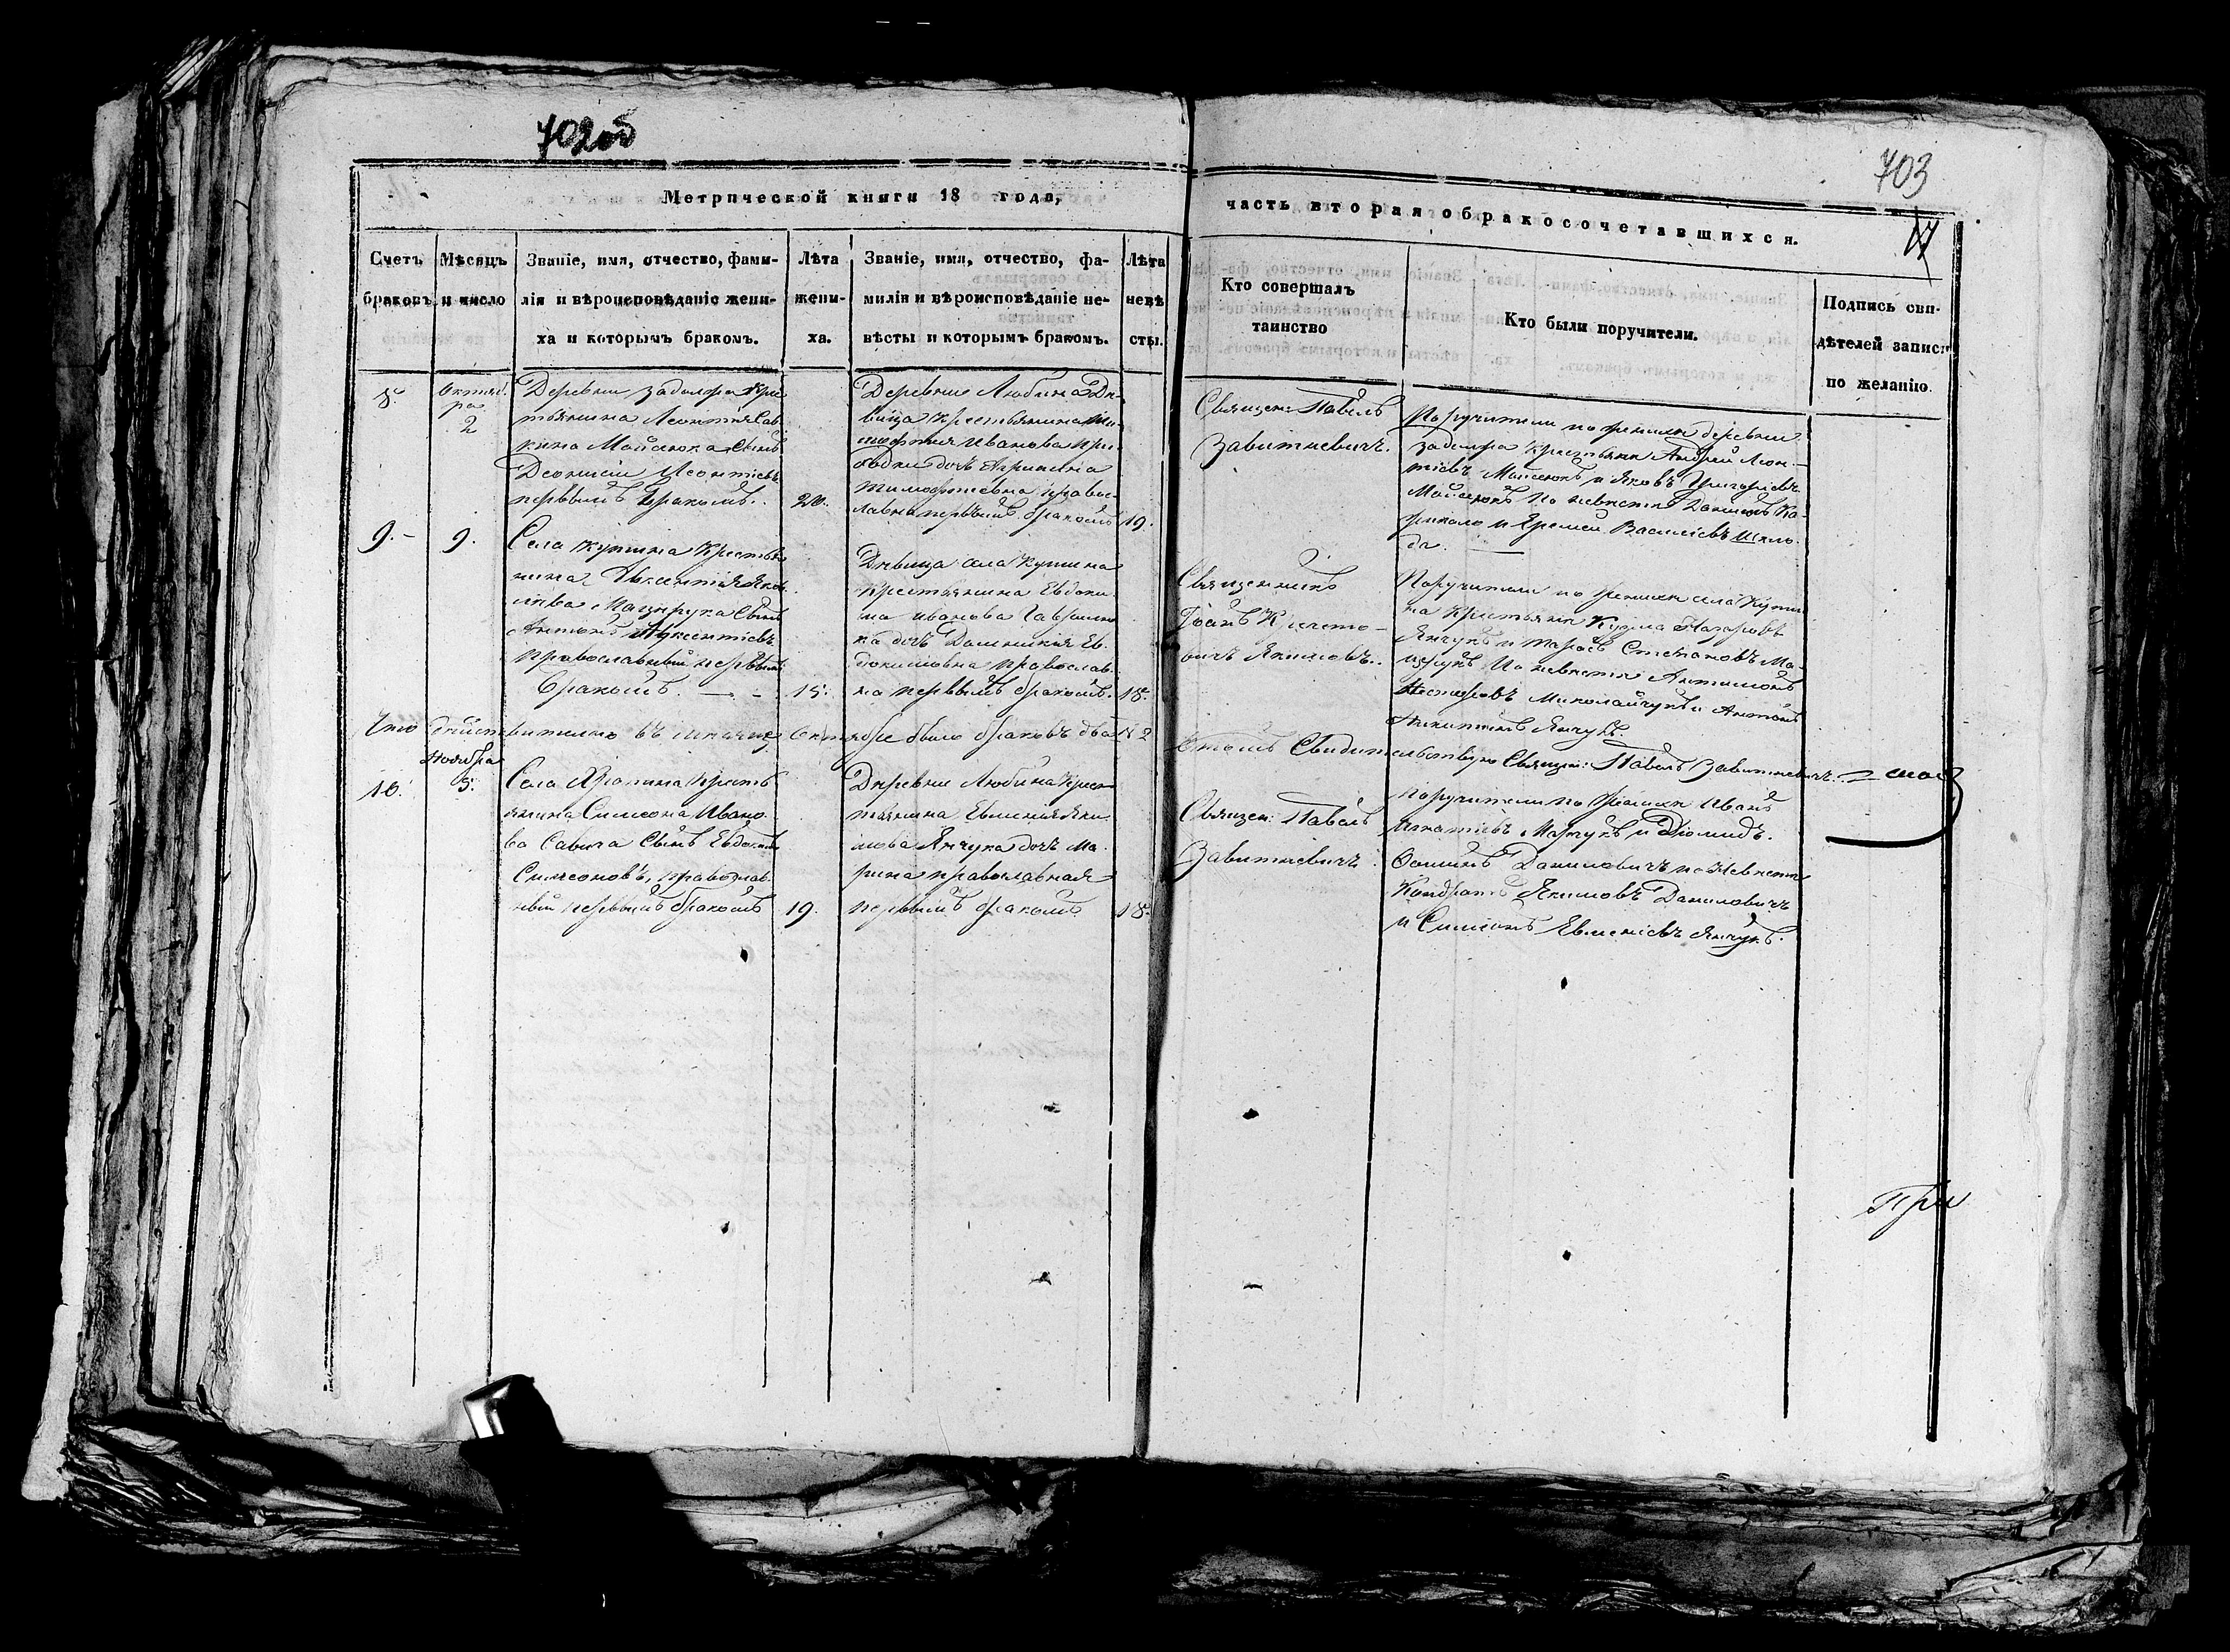 702об
703
Метрической книги 18 года,
часть вторая о бракосочетавшихся.
17
Счетъ браковъ.
Мѣсяцъ и число
Званіе, имя, отчество, фами-
лія и вѣроисповѣданіе жени-
ха и которымъ бракомъ.
Лѣта
жени-
ха.
Званіе, имя, отчество, фа-
милія и вѣроисповѣданіе не-
вѣсты и которымъ бракомъ.
Лѣта
невѣ
сты.
Кто совершалъ
таинство
Кто были поручители.
Подпись сви-
дѣтелей записи
по желанію.
8.
Октяб
ря
2
Деревни Крес
тьянина Леонтія Сав
кина Мойсеюка Сынъ
Леонтіевъ
первымъ бракомъ.
20.
Деревни Любина Дѣ
вица крестьянина Ти
мофтия Иванова
дочь Акрипина
Тимофтеевна правос
лавна первымъ бракомъ
19.
Священ: Павелъ
Завитневичъ.
Поручители по женихѣ деревни
крестьяни Андрей Леон-
тіевъ Мойсеюкъ и Яковъ Григоріевъ
Мойсеюкъ по невѣстѣ
и Еремей Василіевъ Шкло
да.
9.
9.
Села Купина Крестья
нина Авксентія Яков
лива Мазурука Сынъ
Антонъ Авксентіевъ
православный первымъ
бракомъ.
18.
Дѣвица села Купина
крестьянина Евдоки
ма Иванова
дочь Домникія Ев
докимовна православ
на первымъ бракомъ.
18.
Священникъ
Іоанъ
вичъ Якимовъ.
Поручители по женихѣ села Купи
на крестьяни Кузма Назаровъ
Янчукъ и Тарасъ Степановъ Ма-
зурукъ По невѣстѣ
Несторовъ Миколайчукъ и Антонъ
Никитинъ Янчукъ.
Что дѣйствительно въ мѣсяцѣ Октябре было браковъ два № 2
Втомъ Свидительствую Священ: Павелъ Завитневичъ.
Ноября
10.
3.
Села Хропина крестъ
янина Симеона Ивано
ва Савича Сынъ Евдокимъ
Симеоновъ, православ
ный первымъ бракомъ
19.
Деревни Любина крес
тьянина Евменія Яки
мова Янчука дочь Ма
рина православная
первымъ бракомъ
18.
Священ: Павелъ
Завитневичъ.
Поручители по женихѣ Иванъ
Игнатіевъ Марчукъ и Діомидъ
Фоминъ Даниловичъ по Невѣстѣ
Кондратъ Якимовъ Даниловичъ
и Симеонъ Евменіевъ Янчукъ.
При